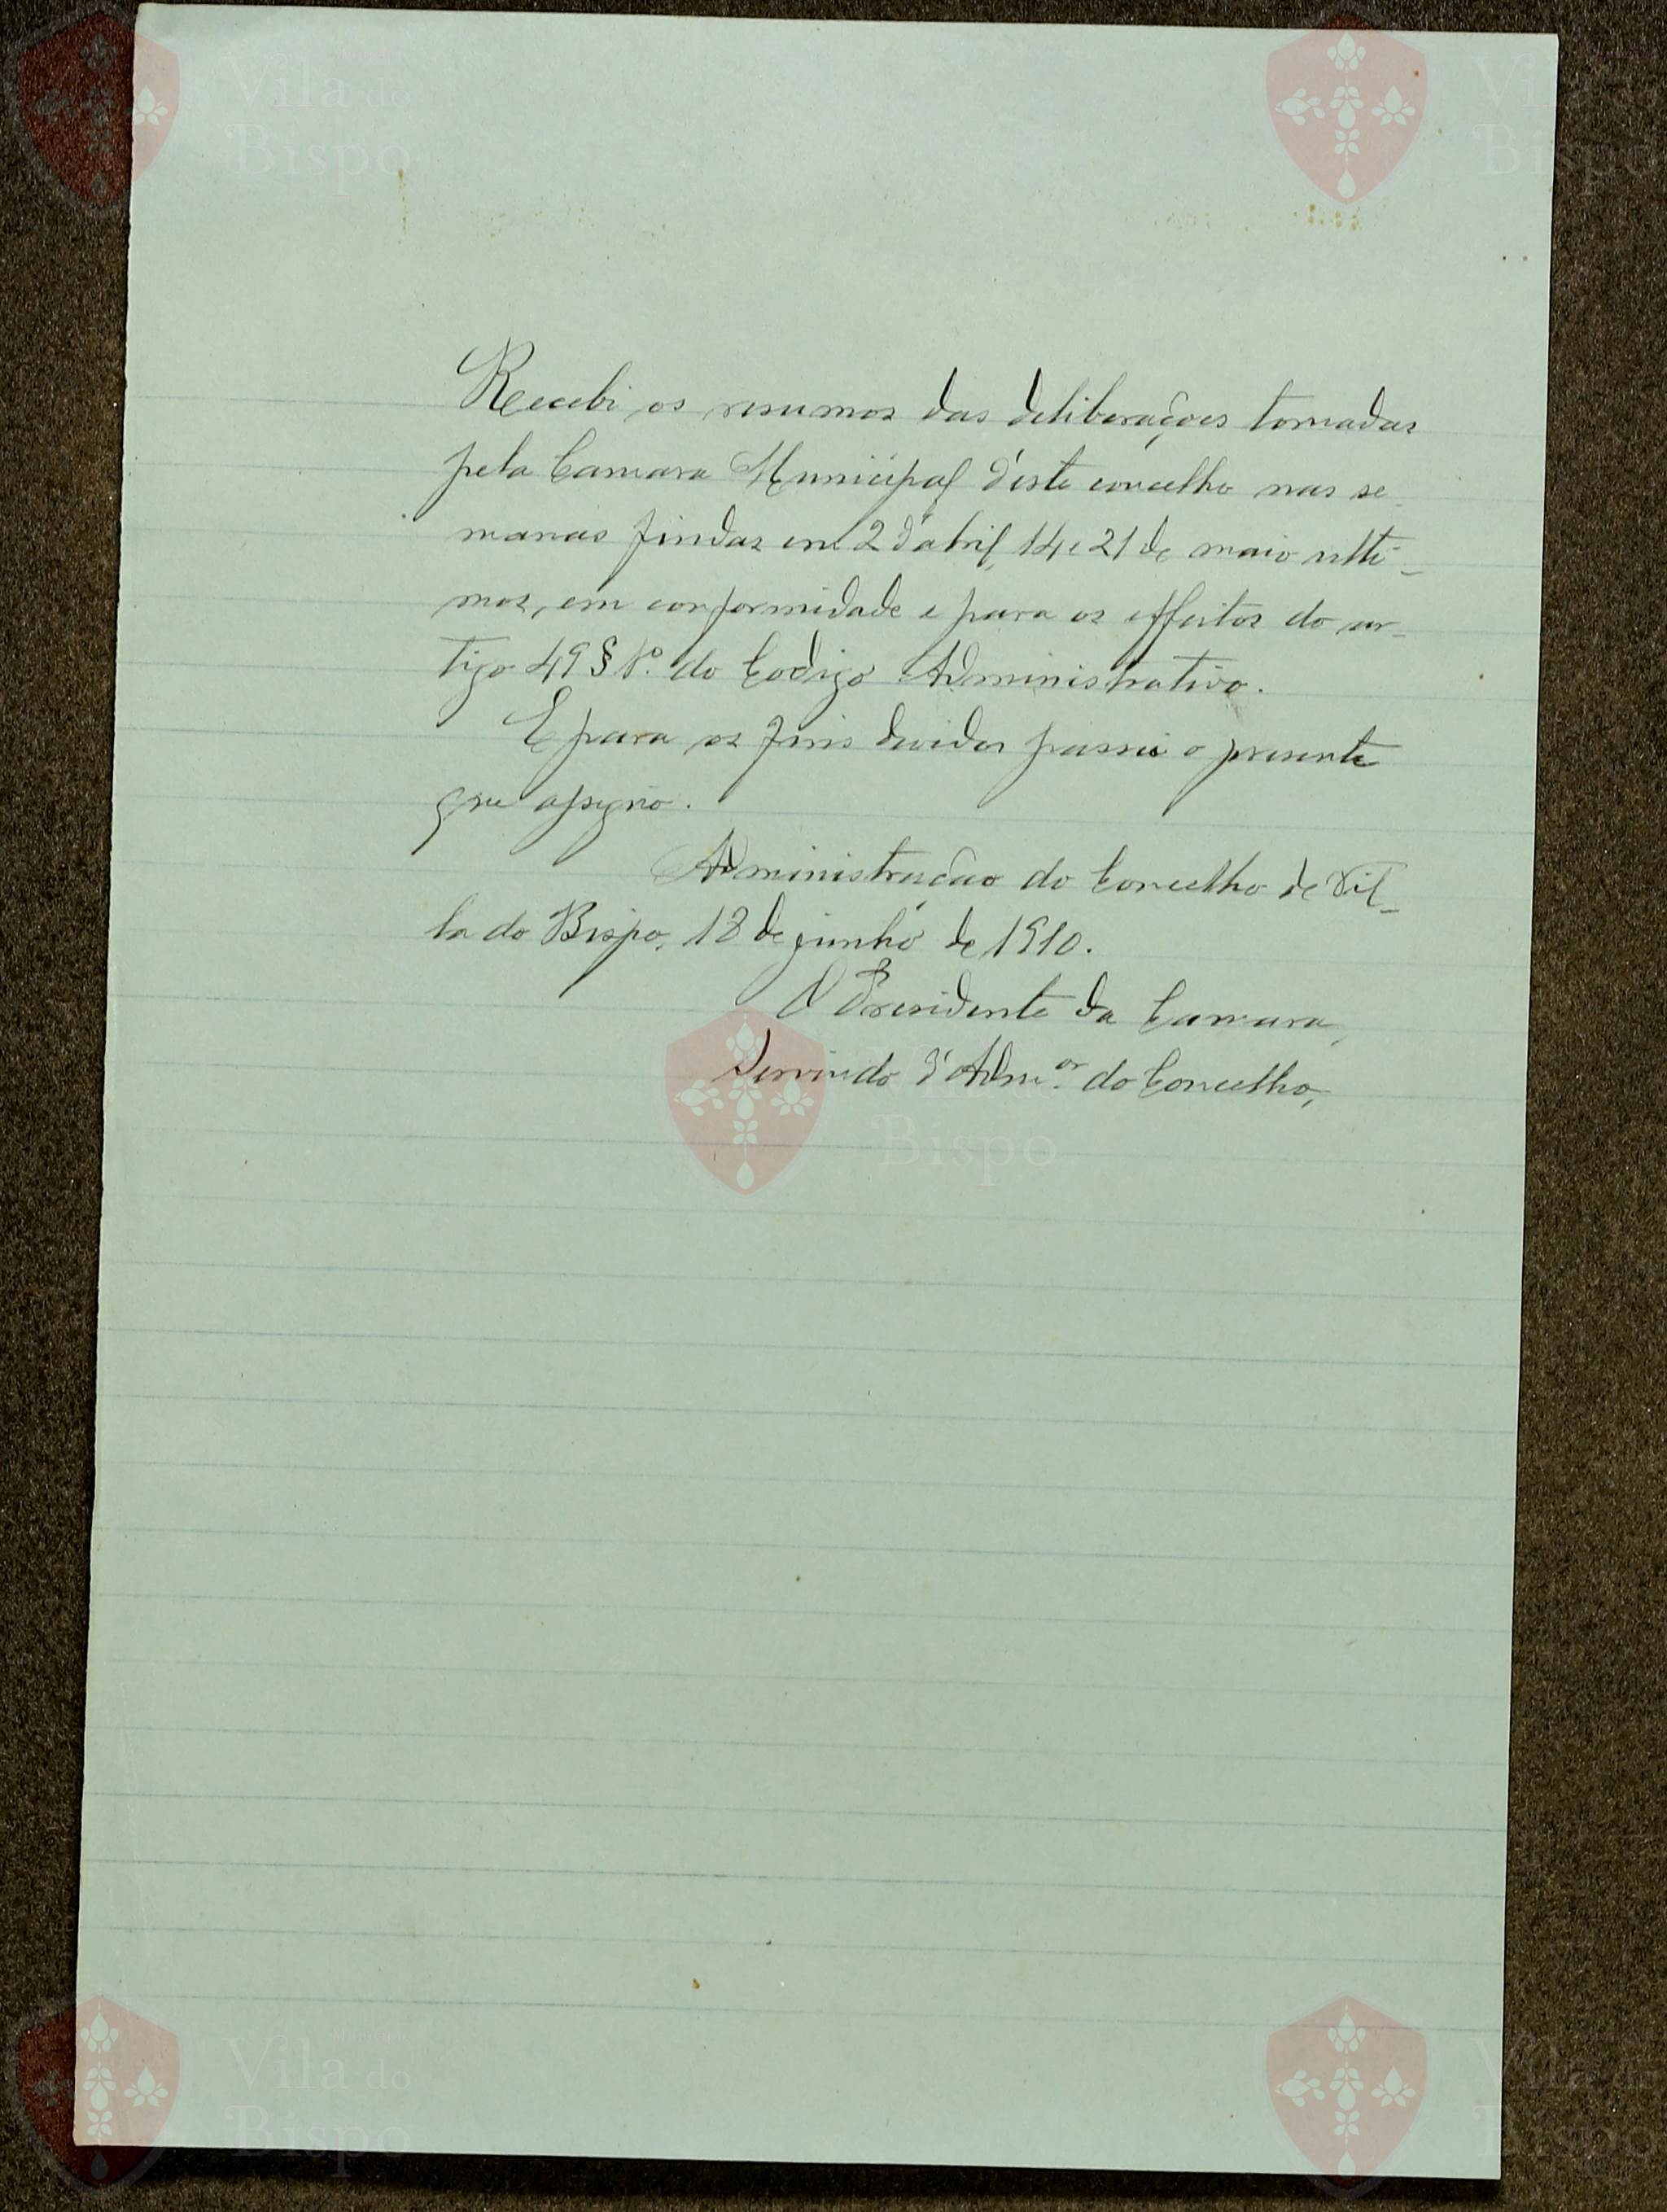 Vila do
Bispo
Vi
Bispo
Recebi os resumos das deliberações tomadas
pela Camara Municipal d'este concelho nas se-
manas findas em 2 d'abril, 14 e 21 de maio ulti-
mos, em conformidade e para os effeitos do ar-
tigo 49 § 1º. do Codigo Administrativo.
E para os fins devidos passei o presente
que assigno.
Administração do Concelho de Vil-
la do Bispo, 18 de junho de 1910.
O Presidente da Camara,
Servindo d'Adm.or do Concelho,
Bispo
Vila do
Bispo